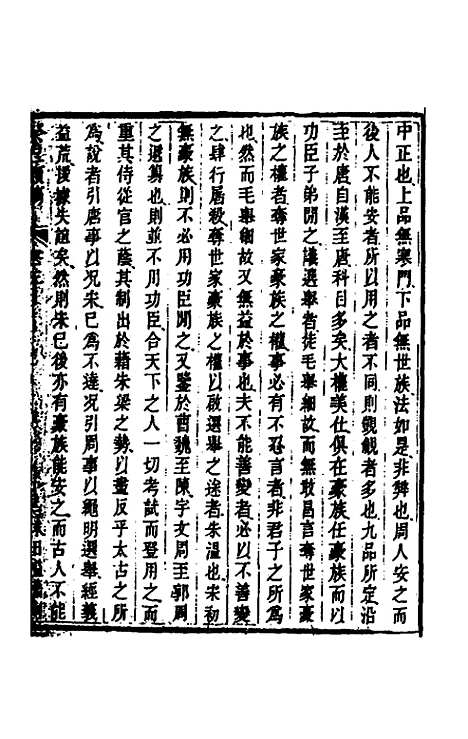 中正也上品無寒門下品無世族法如是非弊也周人安之而
後人不能安者所以用之者不同則觀觀者多也九品所定沿
至於唐自漢至唐科目多矣大權美仕俱在豪族任豪族而以
功臣子弟間之議選舉者徒毛舉細故而無敢昌言奪世家豪
族之權者奪世家豪族之權事必有不忍言者非君子之所為
也然而毛舉細故又無益於事也夫不能善變者必以不善變
之肆行屠殺奪世家豪族之權以啟選舉之途者朱溫也宋初
無豪族則不必用功臣間之又鑒於曹魏至陳宇文周至郭周
之選舉也則並不用功臣合天下之人一切考試而登用之而
重其侍從官之蔭其制出於藉朱梁之勢以盡反乎太古之所
為說者引唐事以況宋已為不達況引周事以繩明選舉經義
益荒援據失誼矣然則宋已後亦有豪族能安之而古人不能